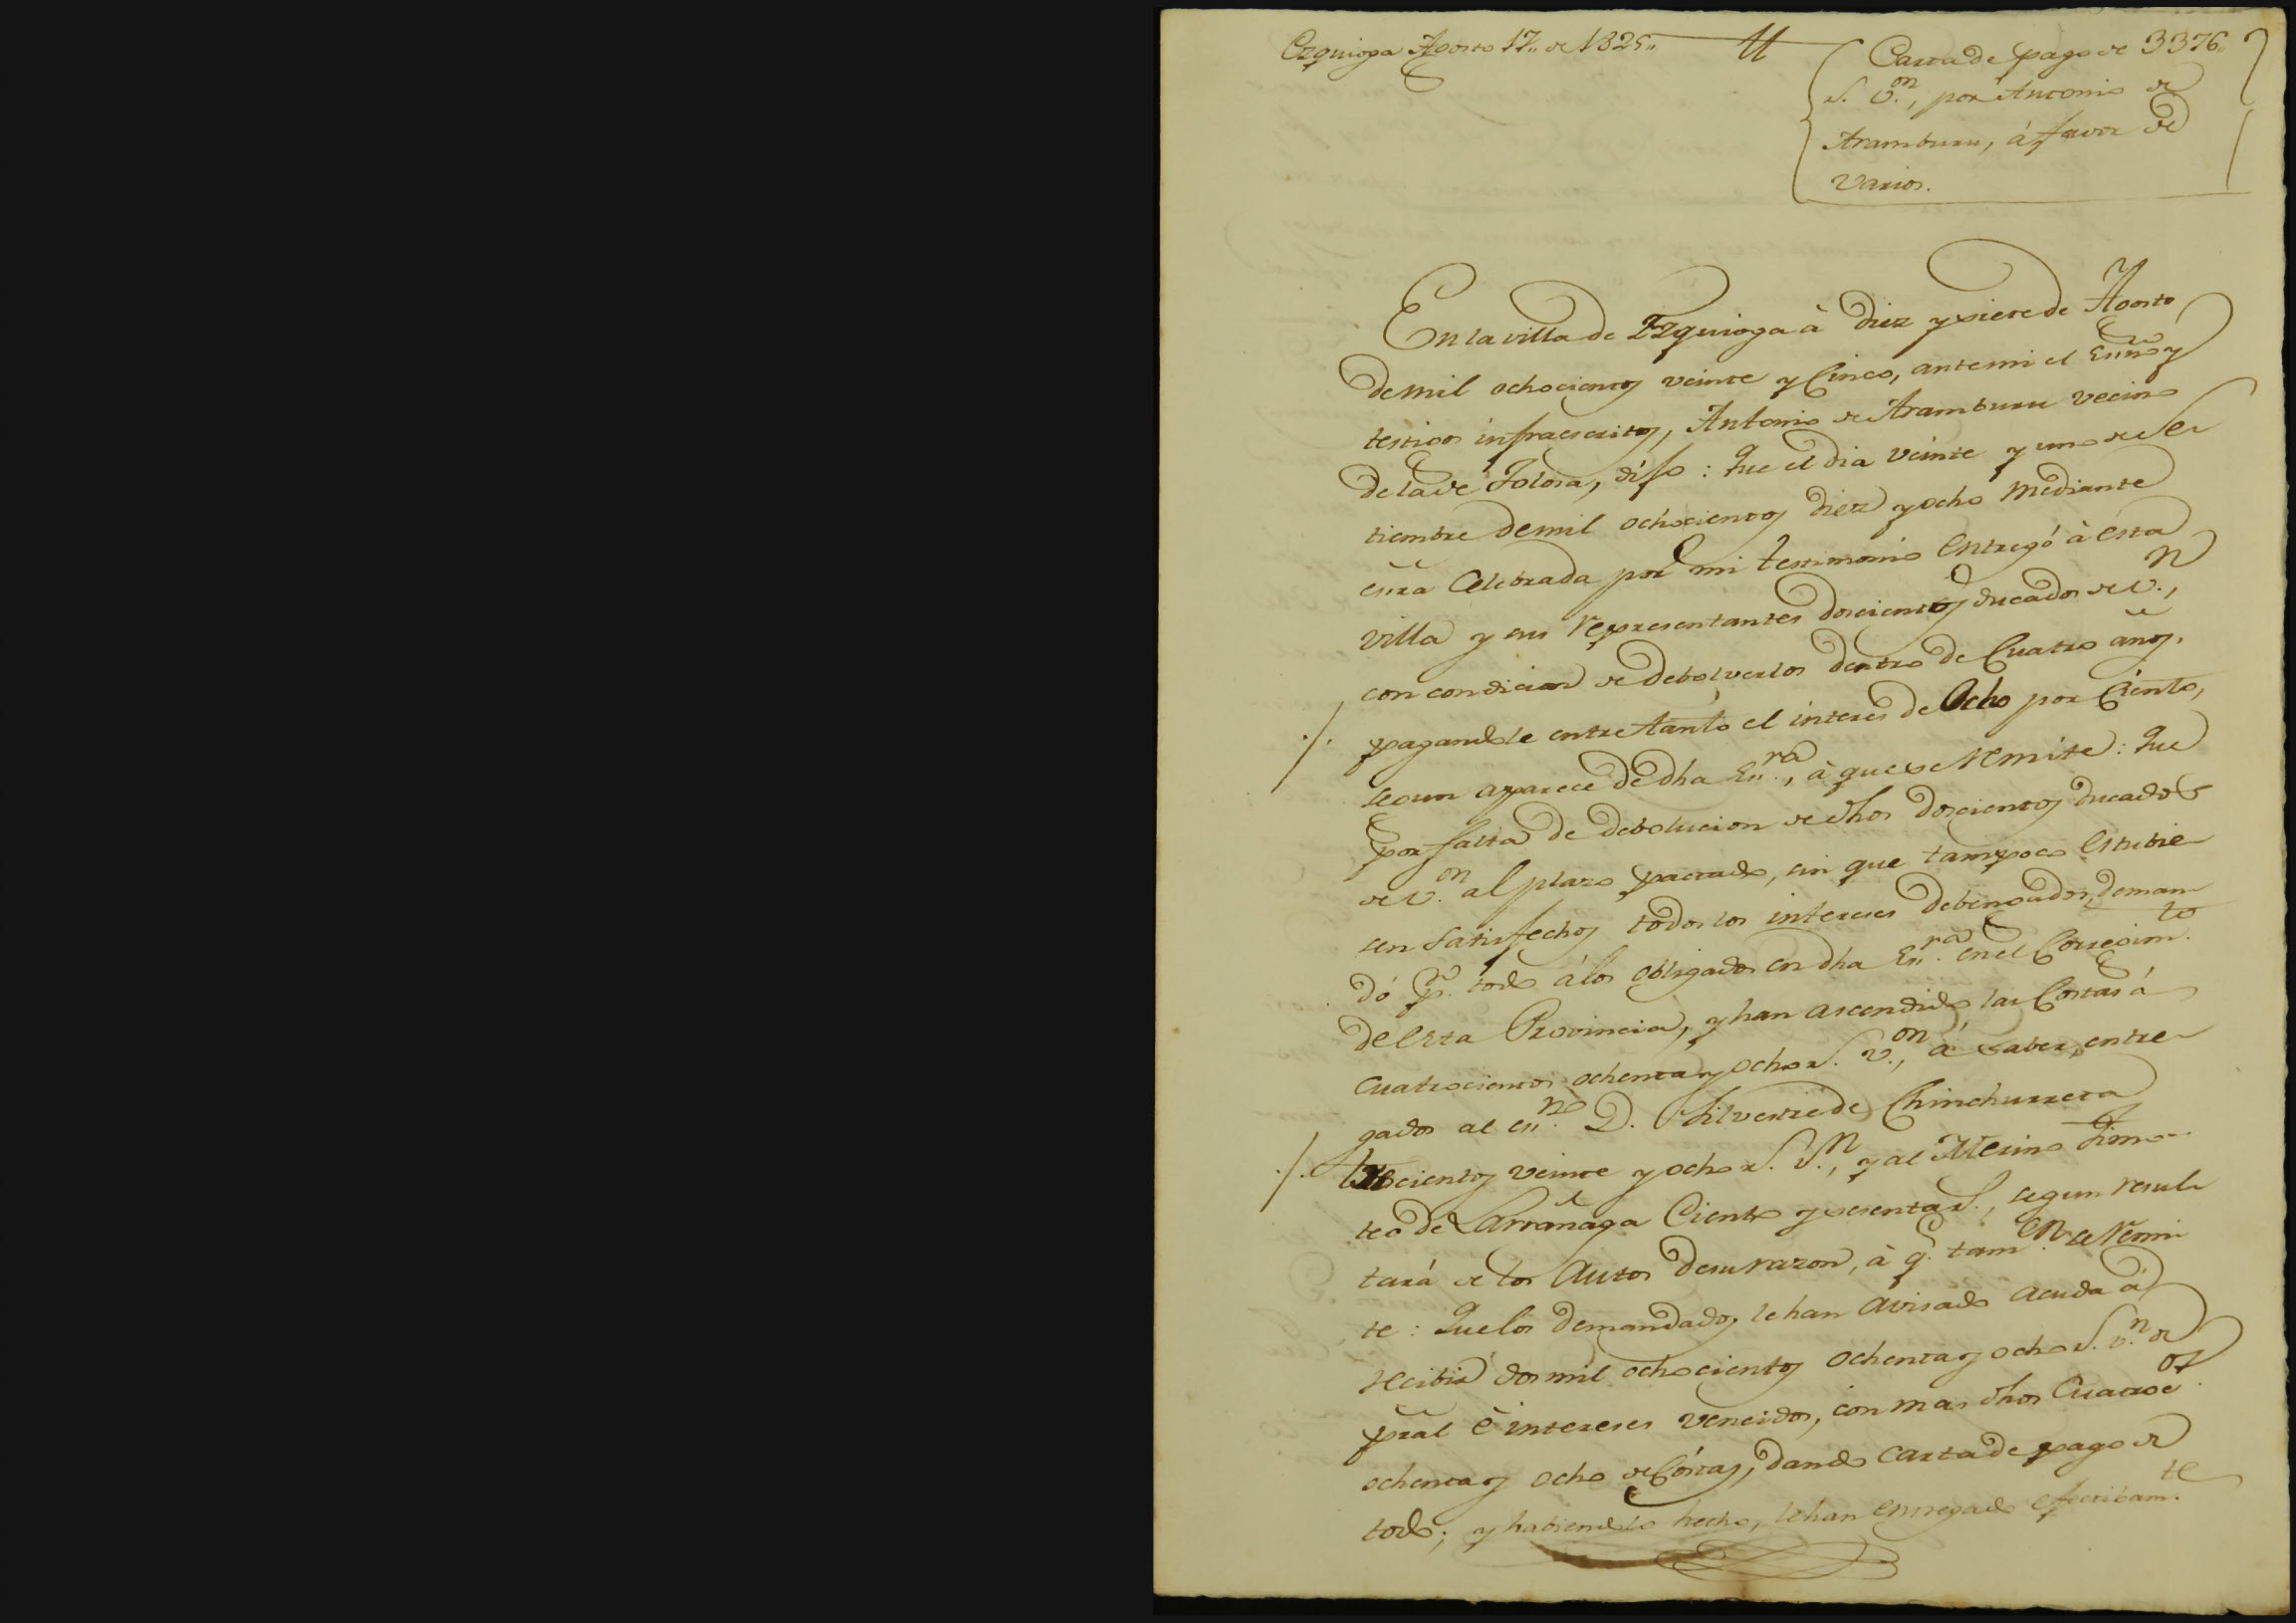 Ezquioga Agosto 17,, de 1825,,
Carta de pago de 3376,,
r.s v.on, por Antonio de
Aramburu, á favor de
varios.
En la villa de Ezquioga à diez y siete de Agosto
de mil ochocientos veinte y Cinco, ante mi el Essno y
testigos infraescritos, Antonio de Aramburu vecino
de la de Tolosa, dijo: Que el dia veinte y uno de Se
tiembre de mil ochocientos diez y ocho mediante
essra Celebrada por mi testimonio Entregó à esta
villa y sus representantes doscientos ducados de v.n,
con condicion de debolverlos dentro de Cuatro años,
./. pagandole entretanto el interes de Ocho por Ciento,
segun aparece de dha Ess.ra, à que se remite: Que
por falta de debolucion de dhos doscientos ducados
de v.on al plazo pactado, sin que tampoco Estubie
sen satisfechos todos los intereses debengados, deman
dó p.r todo á los obligados en dha Ess.ra en el Corregim.to
de Esta Provincia, y han ascendido las Costas á
cuatrocientos ochenta y ocho r.s v.on, á saber, entre
gados al ess.no D. Silvestre de Chinchurreta
./. trescientos veinte y ocho r.s v.n, y al Merino Timo
teo de Larrañaga Ciento y sesenta r.s, segun resul
tará de los Autos de su razon, à q.e tam.en se remi
te: Que los demandados le han avisado acuda à
recibir dos mil ochocientos ochenta y ocho r.s v.n de
pral é intereses vencidos, con mas dhos Cuatroc.os
ochenta y ocho de Costas, dando carta de pago de
todo; y habiendolo hecho, le han entregado efectibam.te